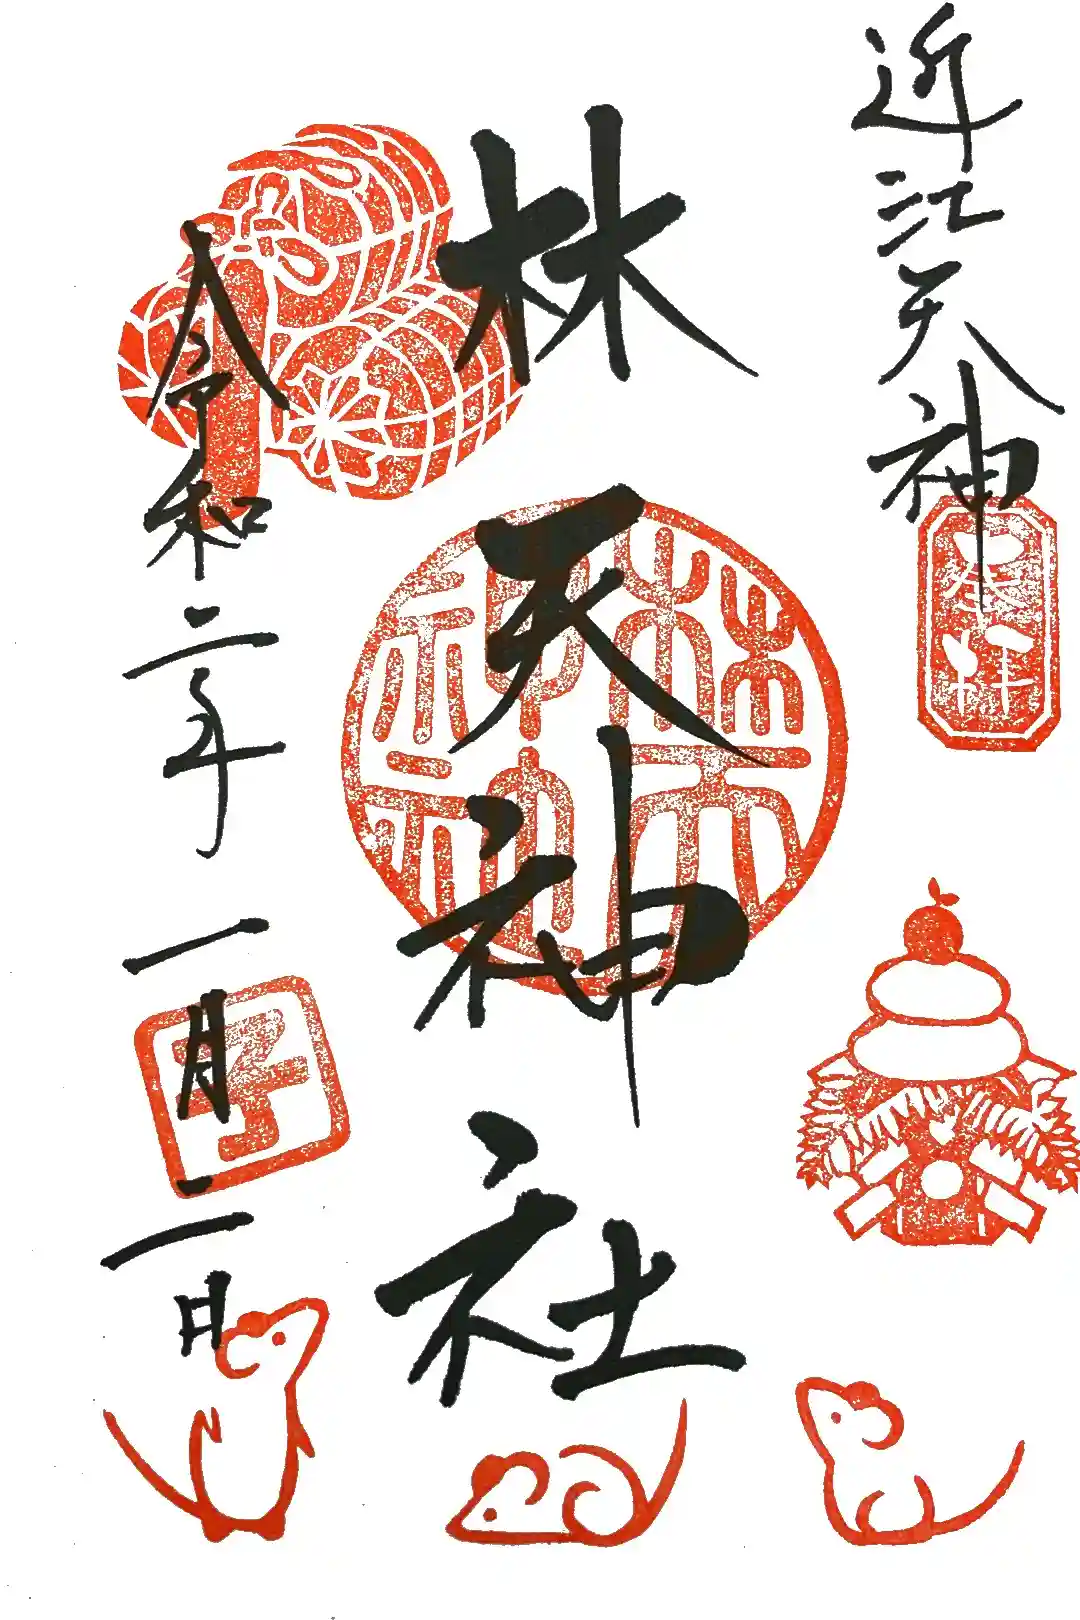 近江天神
奉拝
林天神社
林天神社印
令和二年一月二日
子